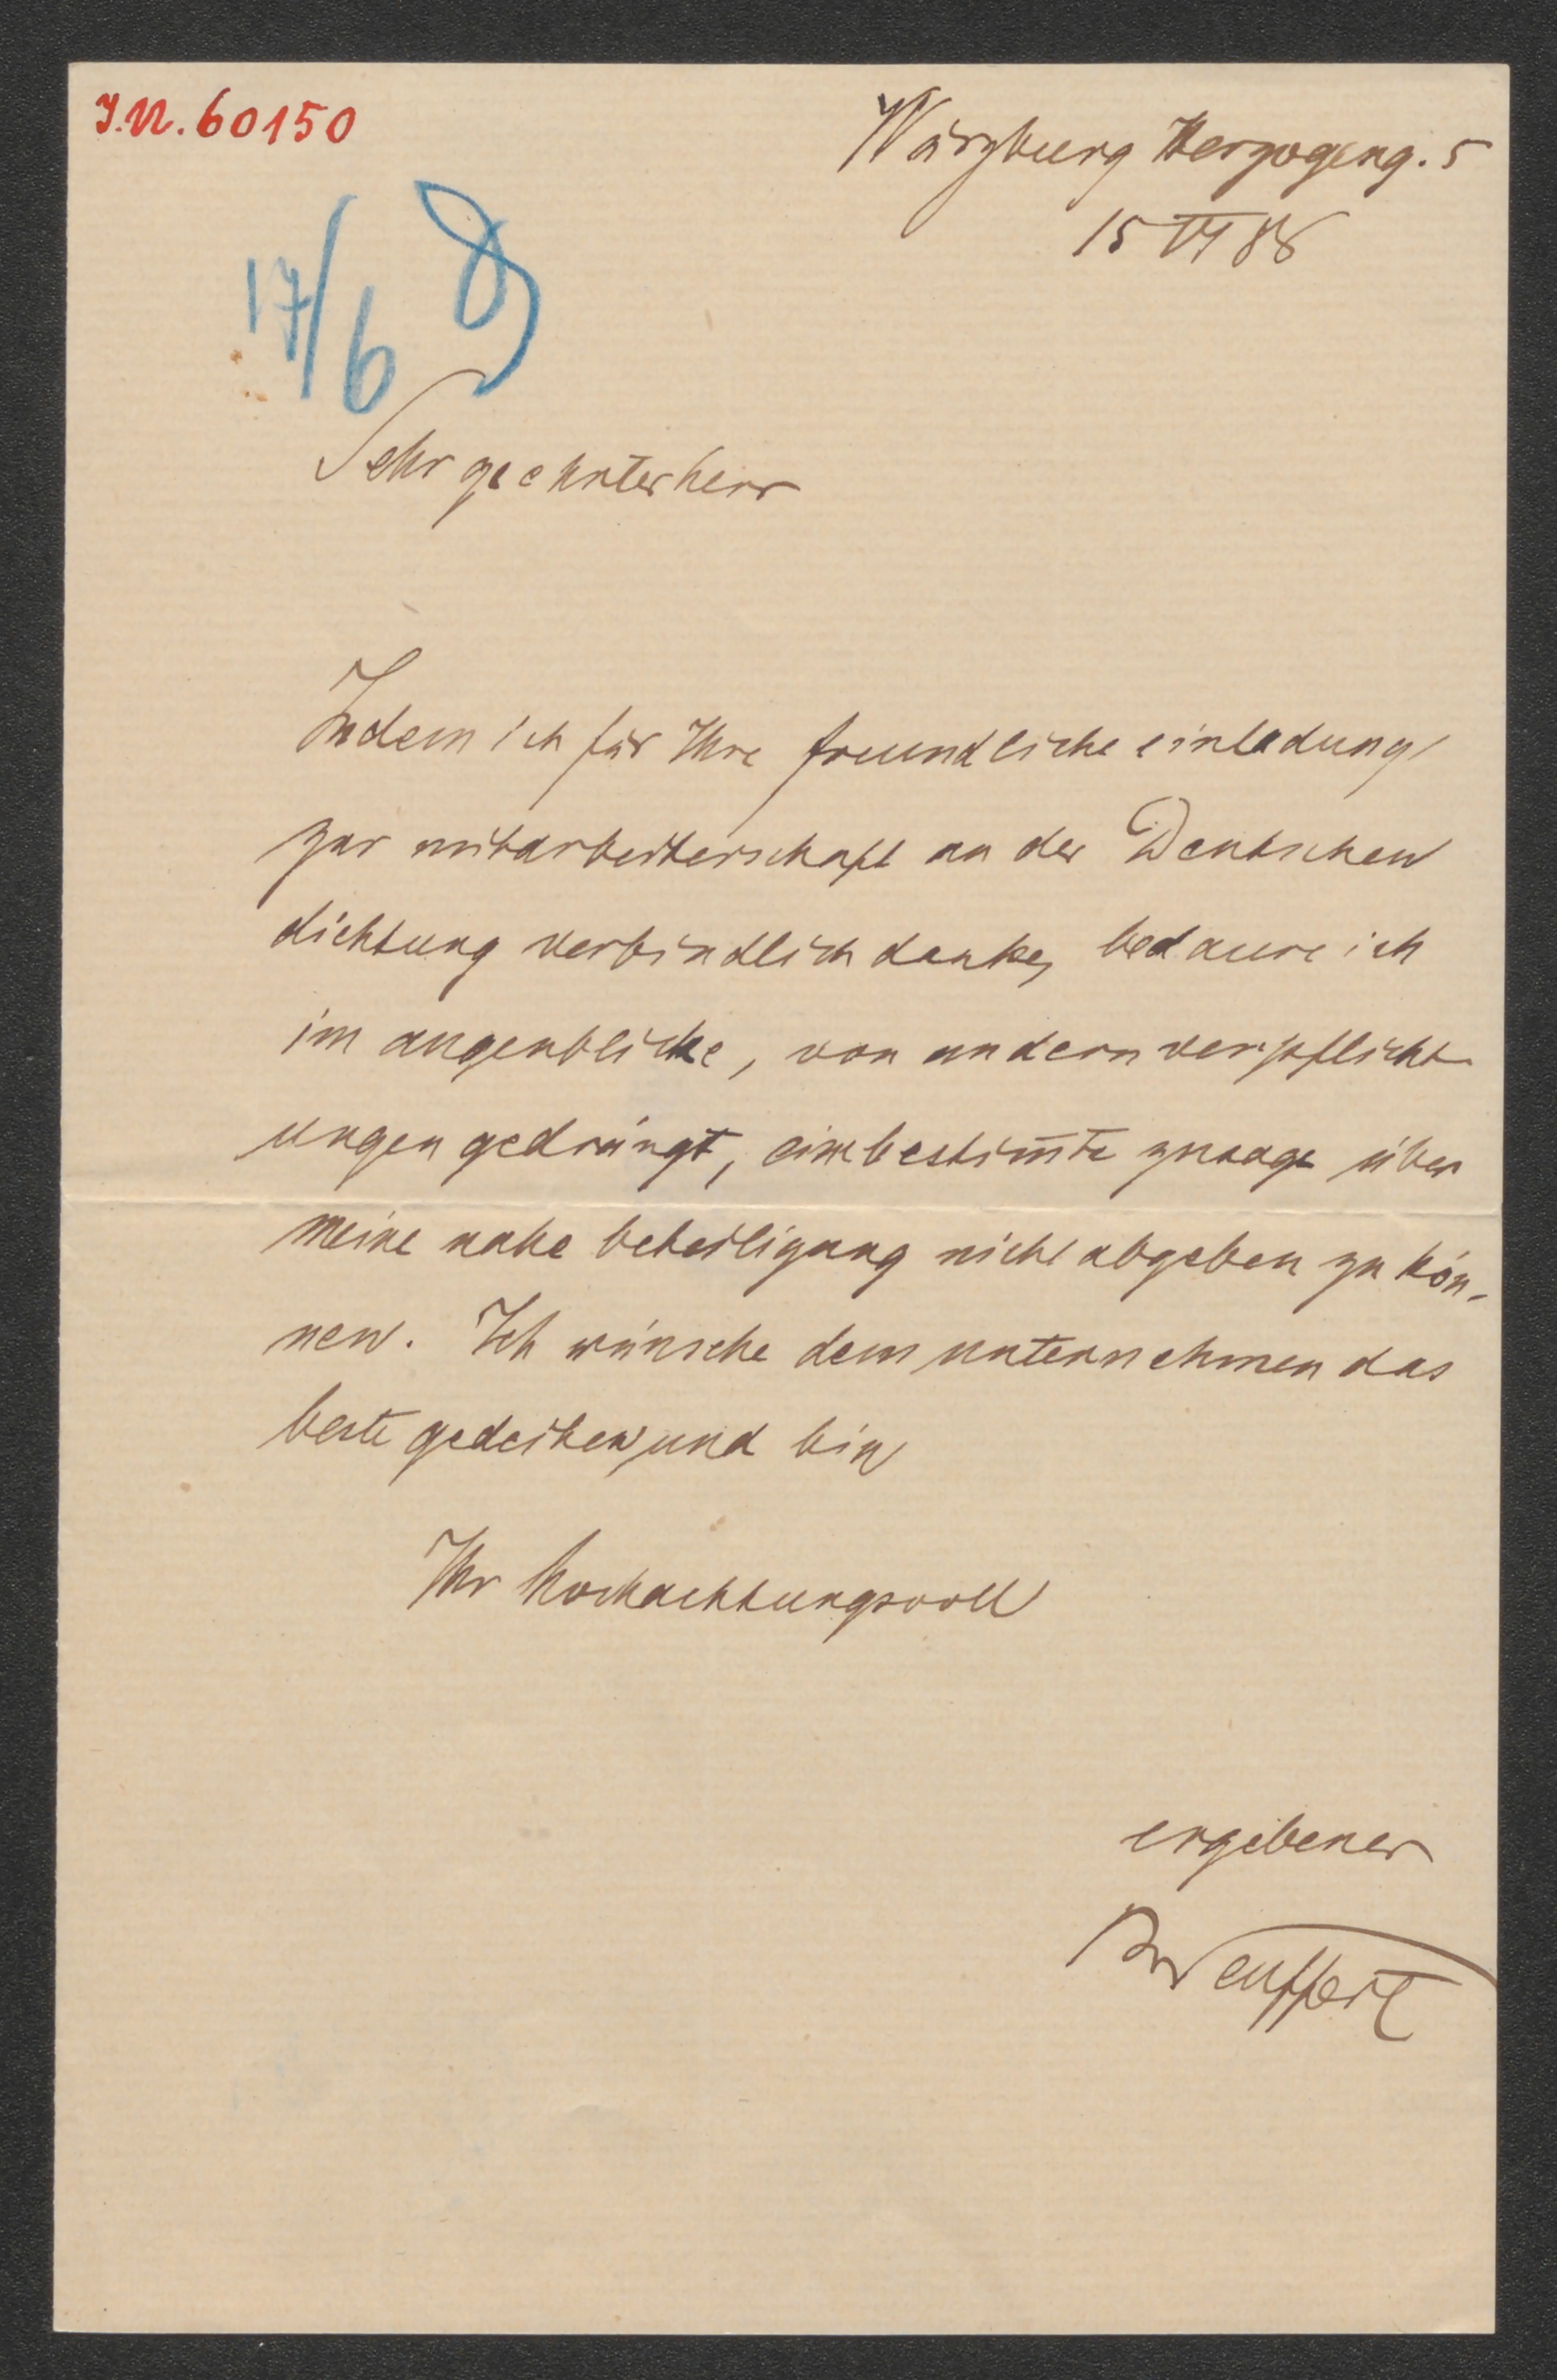 I.N. 60150
Würzburg Herzogeng. 5
15 VI 86
17/6
Sehr geehrter herr
Indem ich für Ihre freundliche einladung
zur mitarbeiterschaft an der Deutschen
dichtung verbindlich danke, bedaure ich
im augenblicke, von andern verpflicht
ungen gedrängt, eine bestim̅te zusage über
meine nahe beteiligung nicht abgeben zu kön-
nen. Ich wünsche dem unternehmen das
beste gedeihen und bin
Ihr hochachtungsvoll
ergebener
BSeuffert